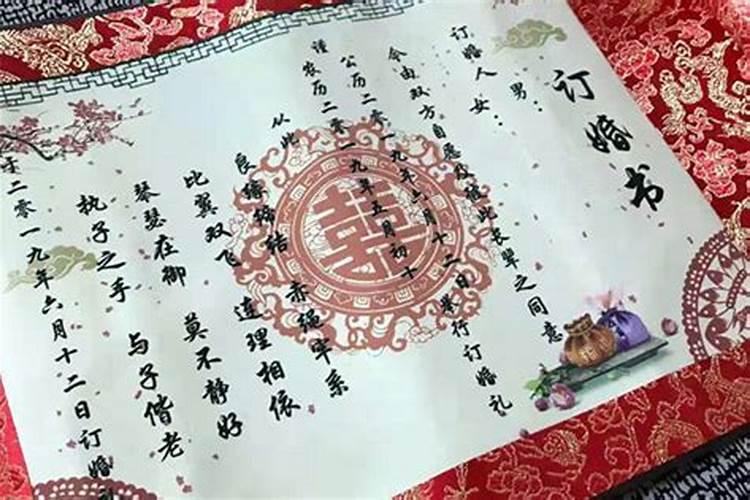 订婚书
男：
订婚人女：
今由双方自愿及彼此长辈之同意
公历二零一九年六月十二日举行订婚礼
谨农历二零一九年五月初十
从此 赤绳牢系
良缘缔结 连理相依
比翼双飞 莫不静好
琴瑟在御 与子偕老
执子之手
于二零一九年六月十二日订婚